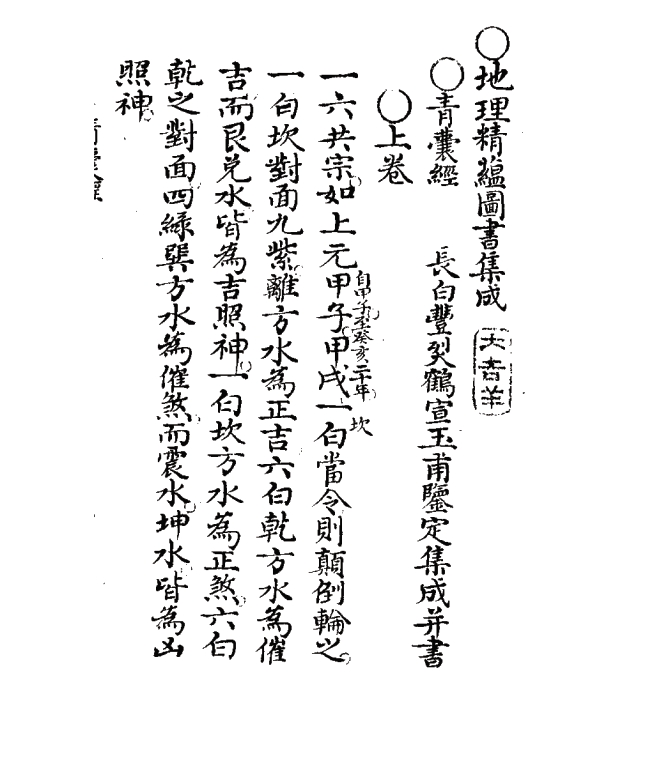 ○地理精蘊圖書集成 大吉羊
○青囊經 長白豐烈鶴宣玉甫鑒定集成并書
○上卷
一六共宗如上元甲子甲戌自甲子至癸亥二十年一白坎當令則顛倒輪之
一白坎對面九紫離方水為正吉六白乾方水為催
吉而艮兌水皆為吉照神一白坎方水為正煞六白
乾之對面四綠巽方水為催煞而震水坤水皆為凶
照神